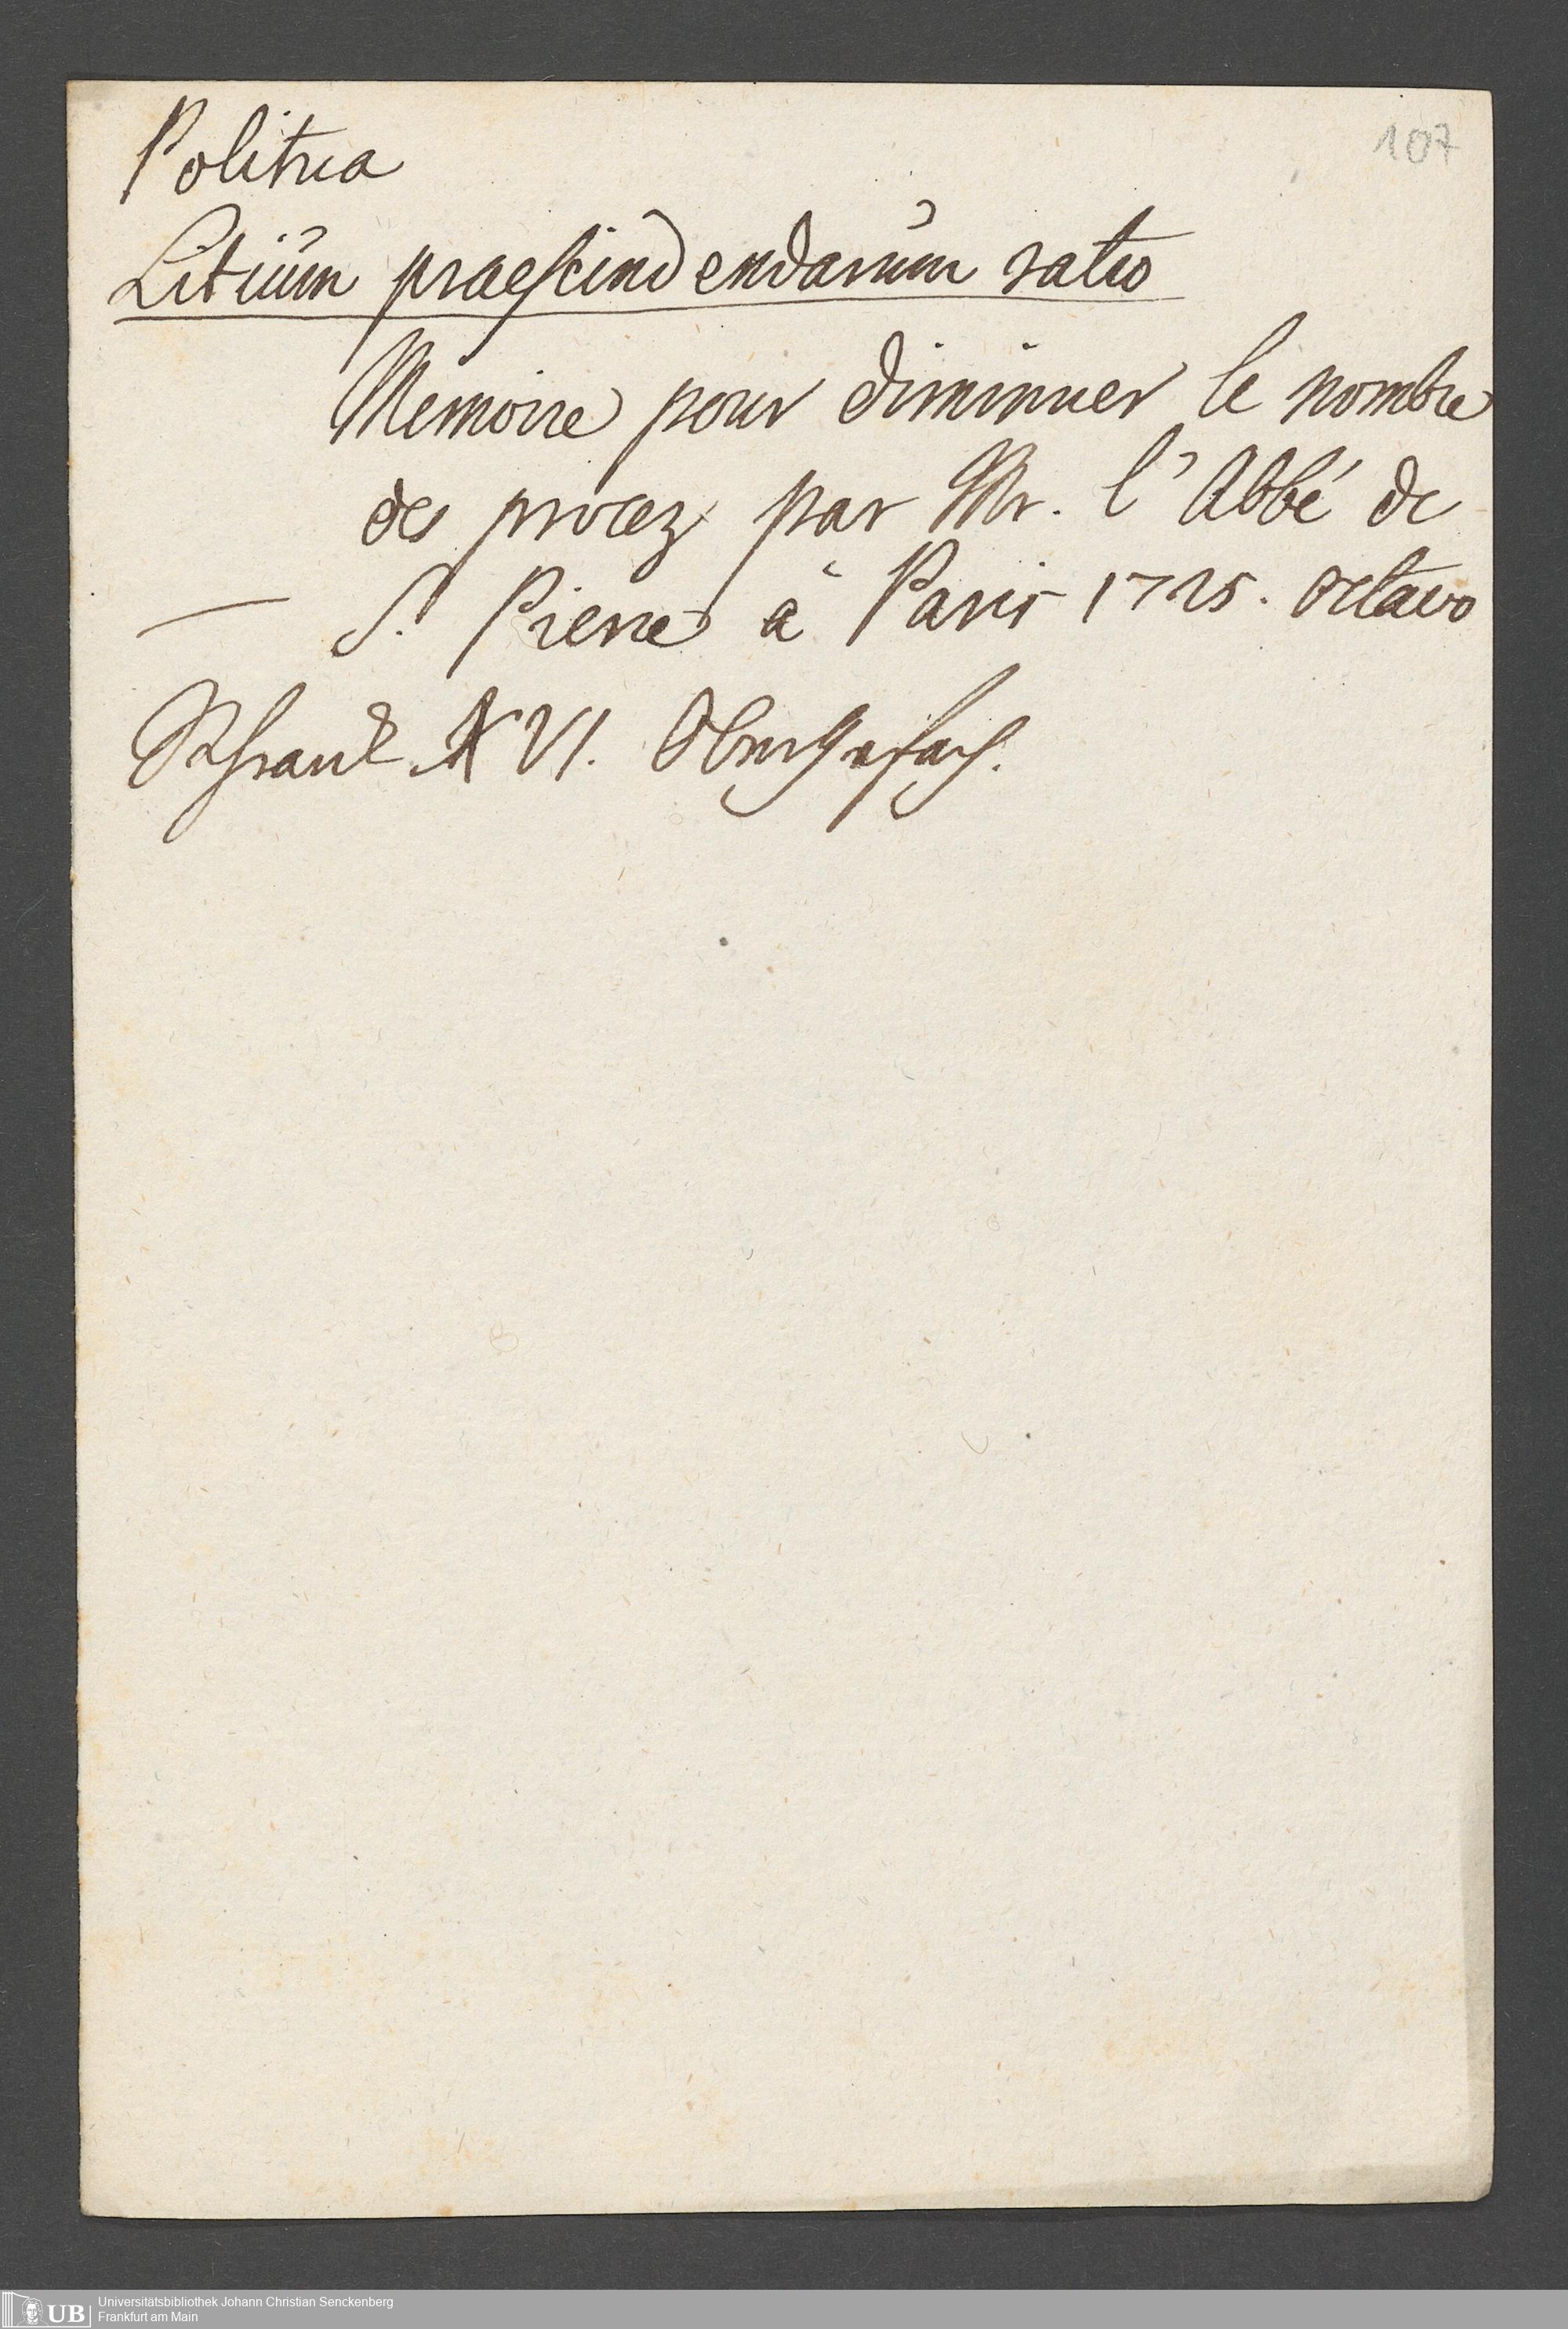 107
Politica
Litium praescindendarum ratio
Memoire pour diminuer le nombre
des procez par Mr. l'Abbé de
— St Pierre à Paris 1725. octavo
Schrank XVI. Obergefach.
UB
Universitätsbibliothek Johann Christian Senckenberg
Frankfurt am Main